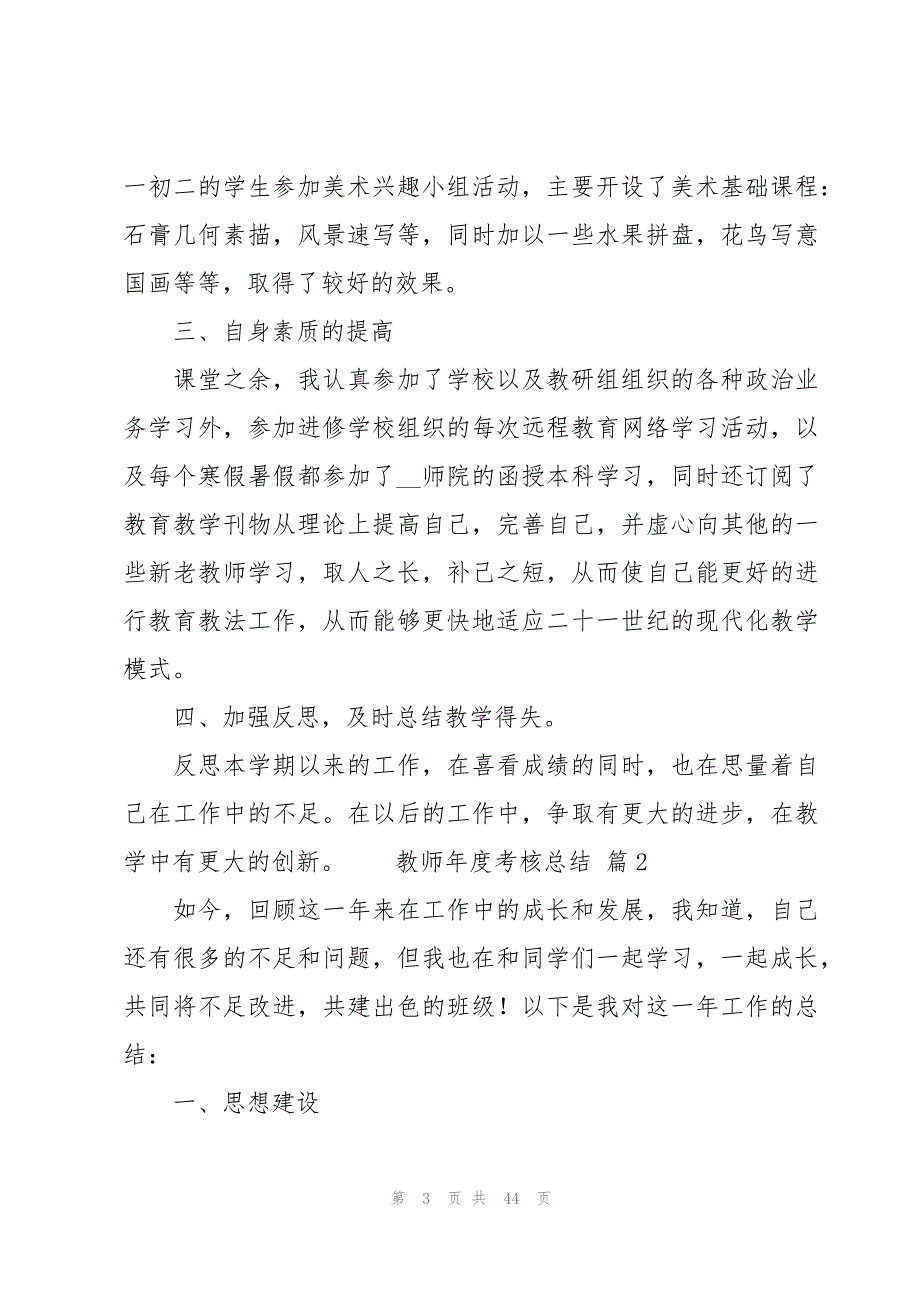 一初二的学生参加美术兴趣小组活动，主要开设了美术基础课程：
石膏几何素描，风景速写等，同时加以一些水果拼盘，花鸟写意
国画等等，取得了较好的效果。
三、自身素质的提高
课堂之余，我认真参加了学校以及教研组组织的各种政治业
务学习外，参加进修学校组织的每次远程教育网络学习活动，以
及每个寒假暑假都参加了__师院的函授本科学习，同时还订阅了
教育教学刊物从理论上提高自己，完善自己，并虚心向其他的一
些新老教师学习，取人之长，补己之短，从而使自己能更好的进
行教育教法工作，从而能够更快地适应二十一世纪的现代化教学
模式。
四、加强反思，及时总结教学得失。
反思本学期以来的工作，在喜看成绩的同时，也在思量着自
己在工作中的不足。在以后的工作中，争取有更大的进步，在教
学中有更大的创新。　　教师年度考核总结 篇2
如今，回顾这一年来在工作中的成长和发展，我知道，自己
还有很多的不足和问题，但我也在和同学们一起学习，一起成长，
共同将不足改进，共建出色的班级！以下是我对这一年工作的总
结：
一、思想建设
第 3 页 共 44 页